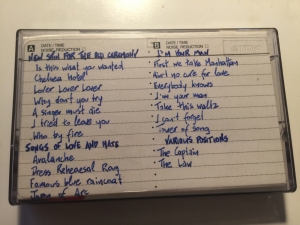 A DATE/TIME
NOISE REDUCTION
NEW SKIN FOR THE OLD CEREMONY
Is this what you wanted
Chelsea Hotel
Lover Lover Lover
Why don't you try
A singer must die
I tried to leave you
Who by fire
SONGS OF LOVE AND HATE
Avalanche
Dress Rehearsal Rag
Famous blue raincoat
Joan of Arc
B DATE/TIME
NOISE REDUCTION
I'M YOUR MAN
First we take Manhattan
Ain't no cure for love
Everybody knows
I'm your man
Take this waltz
I can't forget
Tower of song
VARIOUS POSITIONS
The Captain
The Law